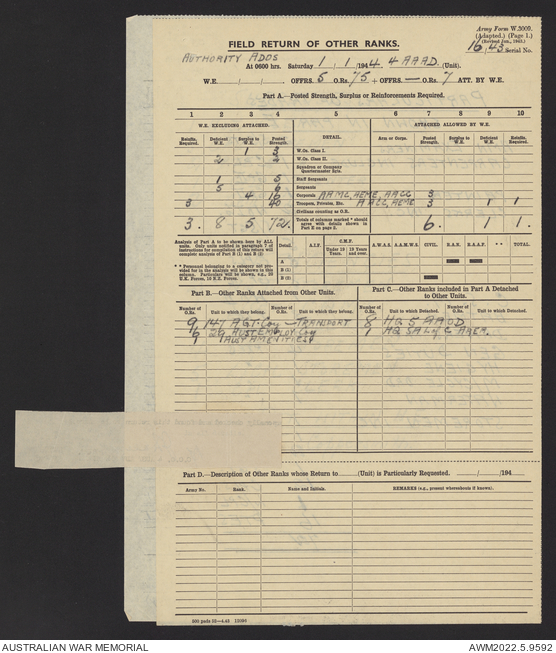 Army Form W.3009.
(Adapted.) (Page 1.)
(Revised Jan., 1943.)
16/43 Serial No.
FIELD RETURN OF OTHER RANKS.
AUTHORITY ADOS
At 0600 hrs. Saturday 1 / 1 /1944 4 AAAD. (Unit).
W.E. / / OFFRS. 5 O.Rs. 75 + OFFRS. — O.Rs. 7 ATT. BY W.E.
Part A.—Posted Strength, Surplus or Reinforcements Required.
1 2 3 4 5 6 7 8 9 10
W.E. EXCLUDING ATTACHED. ATTACHED ALLOWED BY W.E.
Reinfts. Required. Deficient W.E. Surplus to W.E. Posted Strength. DETAIL. Arm or Corps. Posted Strength. Surplus to W.E. Deficient W.E. Reinfts. Required.
1 3 W.Os. Class I.
2 2 W.Os. Class II.
Squadron or Company Quartermaster Sgts.
1 5 Staff Sergeants
5 6 Sergeants
4 16 Corporals AAMC, AEME, AACC 3
3 40 Troopers, Privates, Etc. AACC, AEME 3 1 1
Civilians counting as O.R.
3. 8 5 72. Totals of columns marked * should agree with details shown in Part E on page 2. 6. 1 1.
Analysis of Part A to be shown here by ALL units. Only units notified in paragraph 7 of instructions for compilation of this return will complete analysis of Part B (1) and B (2)
* * Personnel belonging to a category not provided for in the analysis will be shown in this column. Particulars will be shown, e.g., 20 U.K. Forces, 10 N.Z. Forces.
Detail. A.I.F. C.M.F. A.W.A.S. A.A.M.W.S. CIVIL. R.A.N. R.A.A.F. * * TOTAL.
Under 19 Years. 19 Years and over.
A
B (1)
B (2)
Part B.—Other Ranks Attached from Other Units.
Part C.—Other Ranks included in Part A Detached to Other Units.
Number of O.Rs. Unit to which they belong. Number of O.Rs. Unit to which they belong. Number of O.Rs. Unit to which Detached. Number of O.Rs. Unit to which Detached.
9 147 AGT. Coy — TRANSPORT 8 HQ 5 AAOD
6 26 AUST EMPLOY Coy 1 HQ SA L of C AREA.
1 AUST AMENITIES
Part D.—Description of Other Ranks whose Return to (Unit) is Particularly Requested. / /194
Army No. Rank. Name and Initials. REMARKS (e.g., present whereabouts if known).
AUSTRALIAN WAR MEMORIAL
AWM2022.5.9592